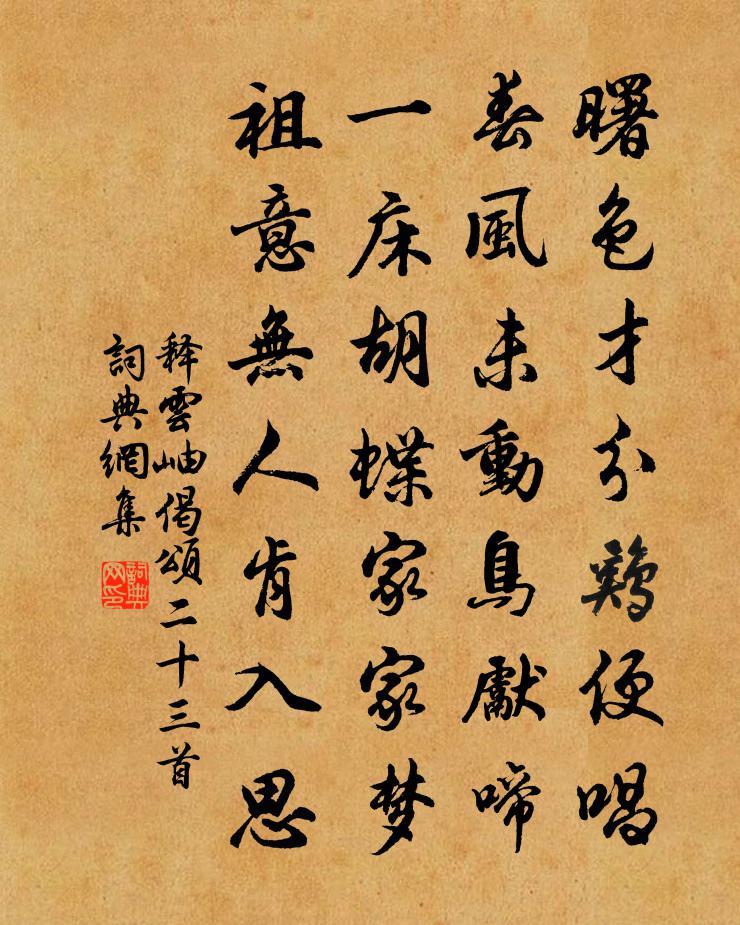 曙色才分鷄便唱
春風未動鳥獻啼
一床胡蝶家家梦
祖意無人肯入思
释雲岫偈頌二十三首
詞典網集
詞典
网印